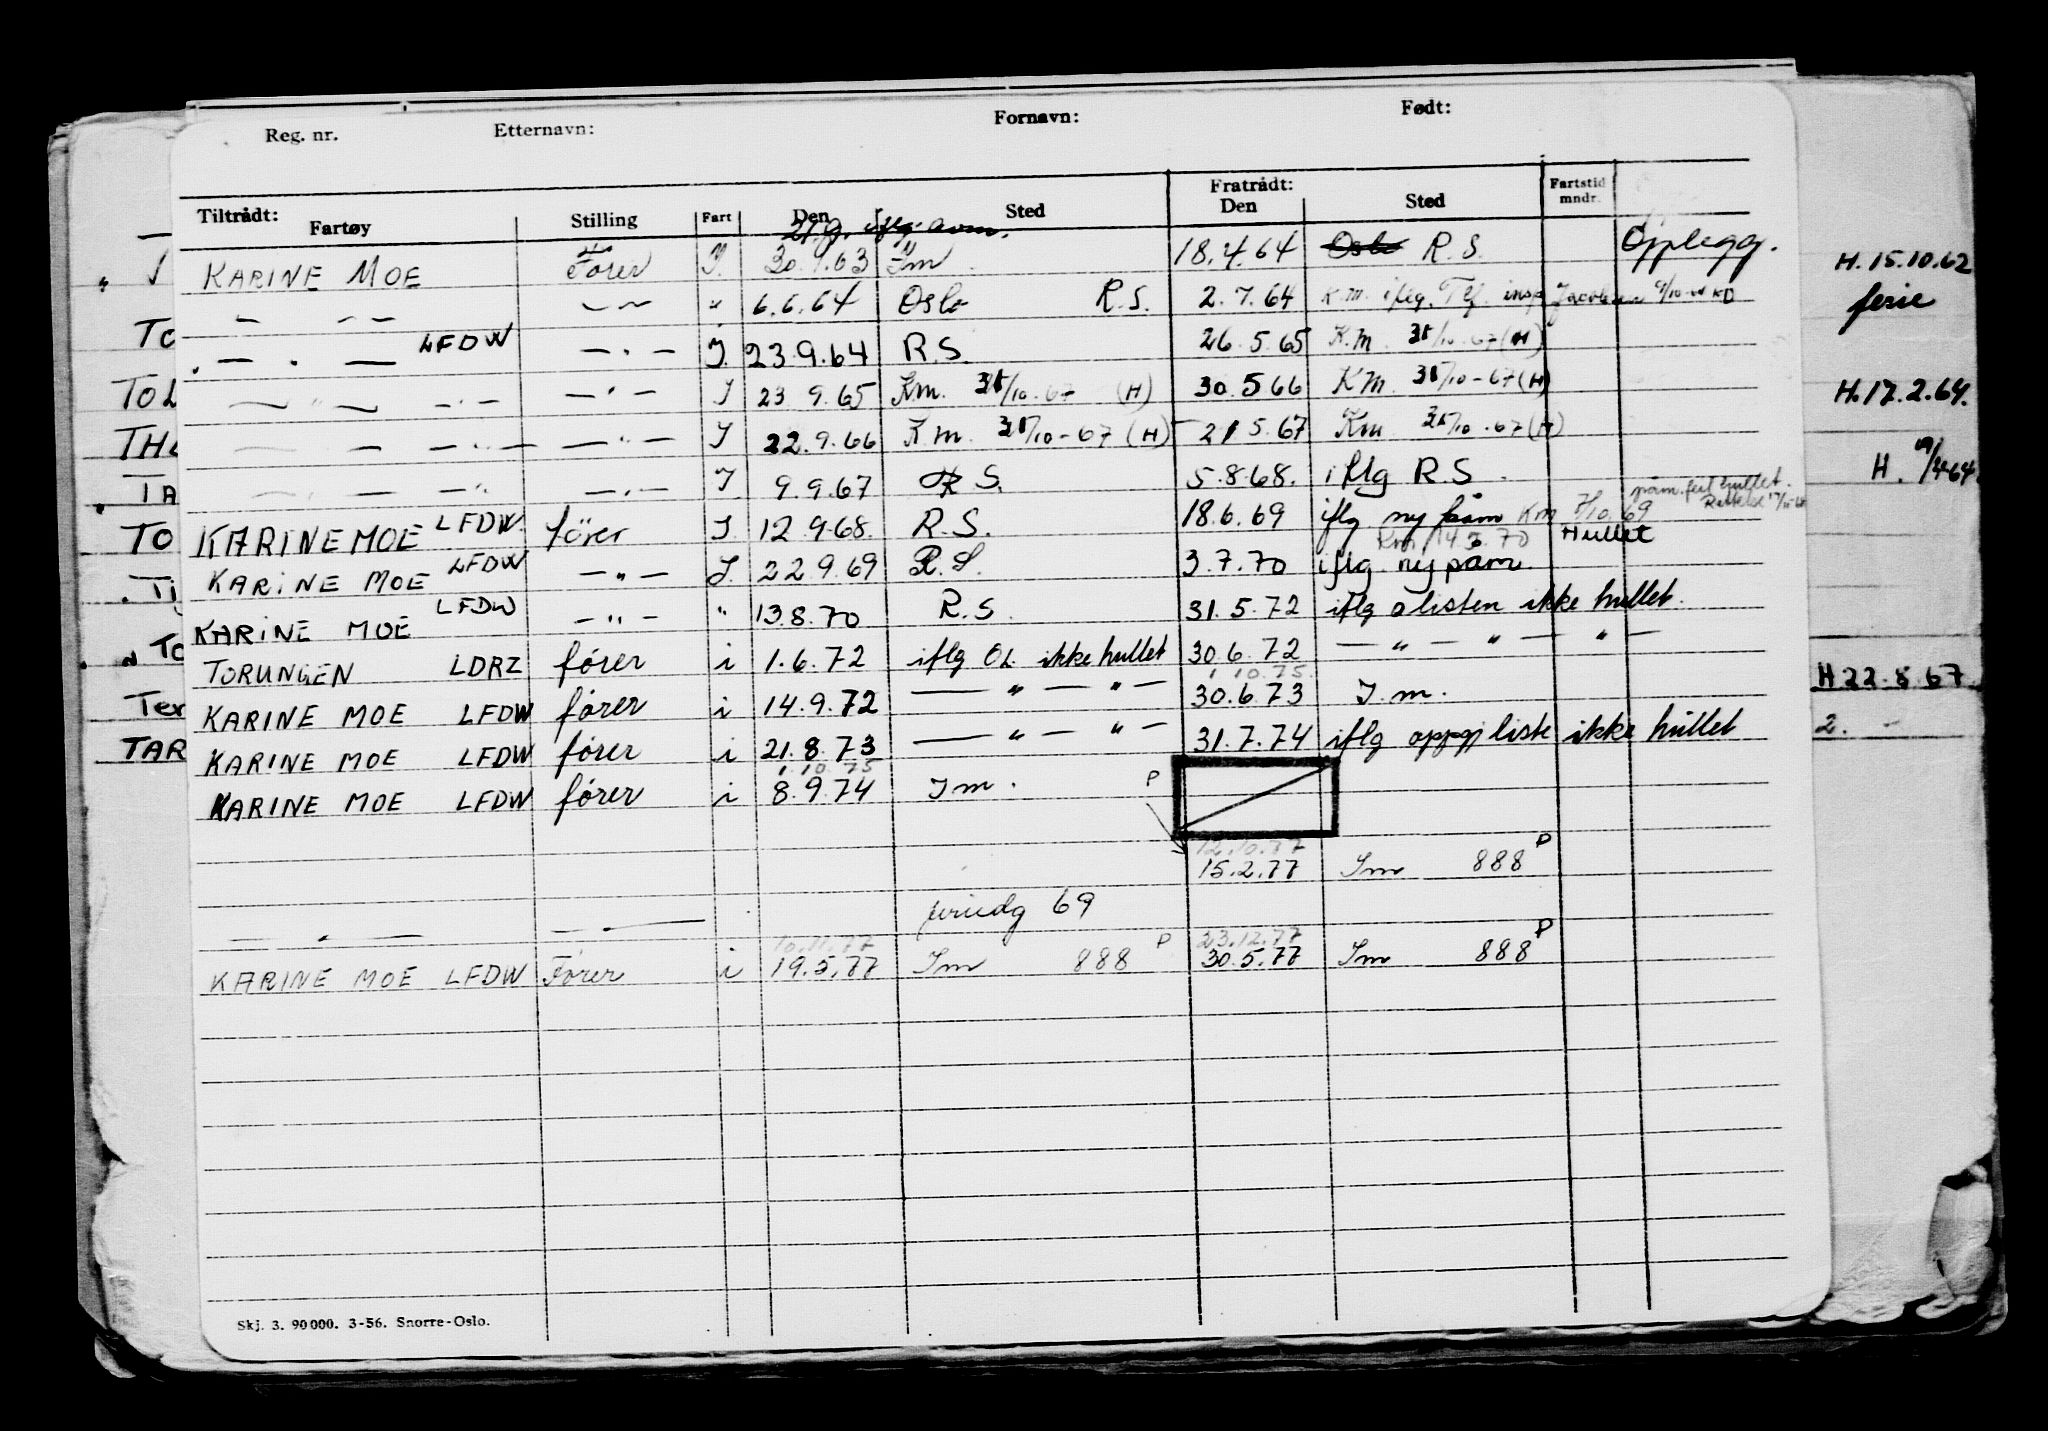 Reg. nr. Etternavn: Fornavn: Født:
Tiltrådt: Fartøy Stilling Fart Den Sted Fratrådt: Den Sted Fartstid mndr.
KARINE MOE Fører I. 30.9.63 Im 18.4.64 Oslo R.S. Opplegg.
— " — — " — " 6.6.64 Oslo R.S. 2.7.64 K.m. iflg. Tlf. insp Jacobsen
— " — LFDW — " — I. 23.9.64 R.S. 26.5.65 K.m. 31/10-67 (H)
— " — — " — — " — I 23.9.65 K.m. 31/10-67 (H) 30.5 66 K.M. 31/10-67 (H)
— " — — " — — " — I 22.9.66 K.m. 31/10-67 (H) 21 5.67 Km 31/10-67 (H)
— " — — " — — " — I 9.9.67 R S. 5.8.68. iflg R S.
KARINE MOE LFDW. fører I. 12.9.68. R.S. 18.6.69 iflg ny påm Km 7/10.69 Hullet
KARINE MOE LFDW — " — I. 22 9.69 R.S. 3.7.70 iflg ny påm.
KARINE MOE LFDW — " — " 13.8.70 R.S. 31.5.72 iflg o listen ikke hullet.
TORUNGEN LDRZ fører i 1.6.72 iflg OL ikke hullet 30.6.72 — " — " — " —
1.10.75.
KARINE MOE LFDW fører i 14.9.72 — " — " — 30.6.73 I.m.
KARINE MOE LFDW fører i 21.8.73 — " — " — 31.7.74 iflg oppgj liste ikke hullet
1.10.75
KARINE MOE LFDW fører i 8.9.74 Im. P
12.10.77
15.2.77 Im 888 P
— " — — " — 69
10.11.77 23.12.77
KARINE MOE LFDW Fører i 19.5.77 Im 888 P 30.5.77 Im 888 P
Skj. 3. 90000. 3-56. Snorre-Oslo.
H. 15.10.62
ferie
TO
TOL
H.17.2.64.
TH
TA
TO
Ti
To
H 22.8.67.
Ter
2. -
TAR